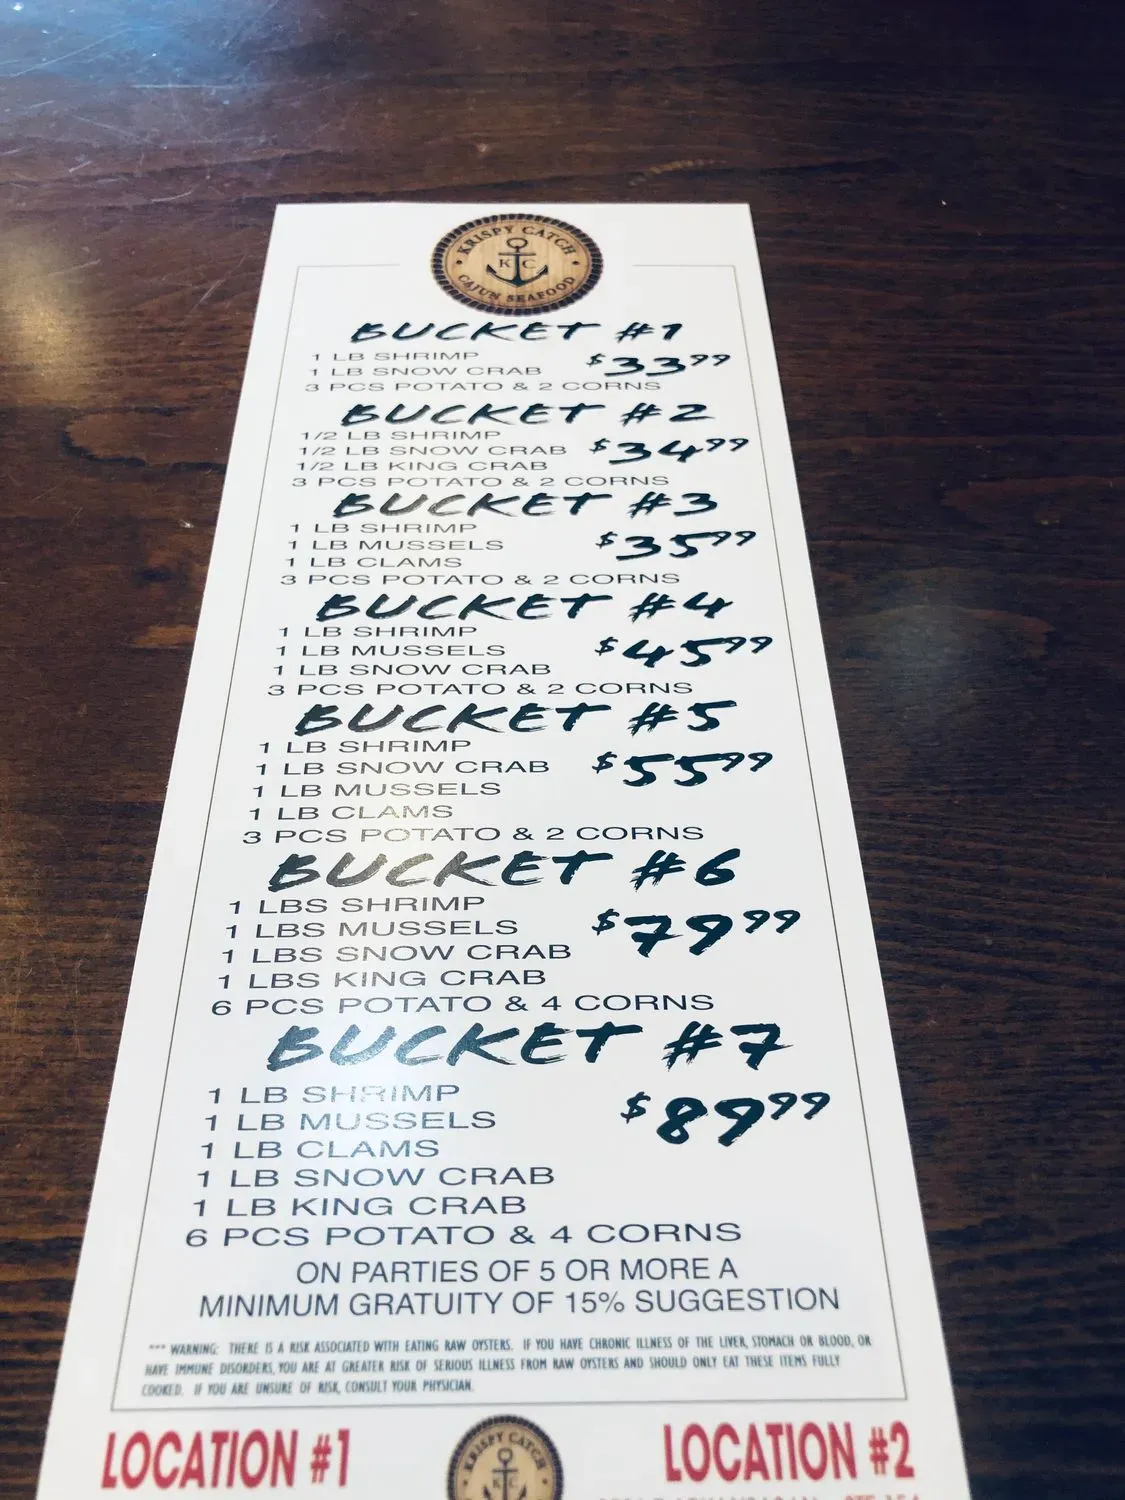 KRISPY CATCH
K C
CAJUN SEAFOOD
BUCKET #1
1 LB SHRIMP
$33.99
1 LB SNOW CRAB
3 PCS POTATO & 2 CORNS
BUCKET #2
1/2 LB SHRIMP
1/2 LB SNOW CRAB
$34.99
1/2 LB KING CRAB
3 PCS POTATO & 2 CORNS
BUCKET #3
1 LB SHRIMP
1 LB MUSSELS
$35.99
1 LB CLAMS
3 PCS POTATO & 2 CORNS
BUCKET #4
1 LB SHRIMP
1 LB MUSSELS
$45.99
1 LB SNOW CRAB
3 PCS POTATO & 2 CORNS
BUCKET #5
1 LB SHRIMP
1 LB SNOW CRAB
$55.99
1 LB MUSSELS
1 LB CLAMS
3 PCS POTATO & 2 CORNS
BUCKET #6
1 LBS SHRIMP
1 LBS MUSSELS
$79.99
1 LBS SNOW CRAB
1 LBS KING CRAB
6 PCS POTATO & 4 CORNS
BUCKET #7
1 LB SHRIMP
1 LB MUSSELS
$89.99
1 LB CLAMS
1 LB SNOW CRAB
1 LB KING CRAB
6 PCS POTATO & 4 CORNS
ON PARTIES OF 5 OR MORE A
MINIMUM GRATUITY OF 15% SUGGESTION
*** WARNING: THERE IS A RISK ASSOCIATED WITH EATING RAW OYSTERS. IF YOU HAVE CHRONIC ILLNESS OF THE LIVER, STOMACH OR BLOOD, OR
HAVE IMMUNE DISORDERS, YOU ARE AT GREATER RISK OF SERIOUS ILLNESS FROM RAW OYSTERS AND SHOULD ONLY EAT THESE ITEMS FULLY
COOKED. IF YOU ARE UNSURE OF RISK, CONSULT YOUR PHYSICIAN.
LOCATION #1
KRISPY CATCH
K C
LOCATION #2